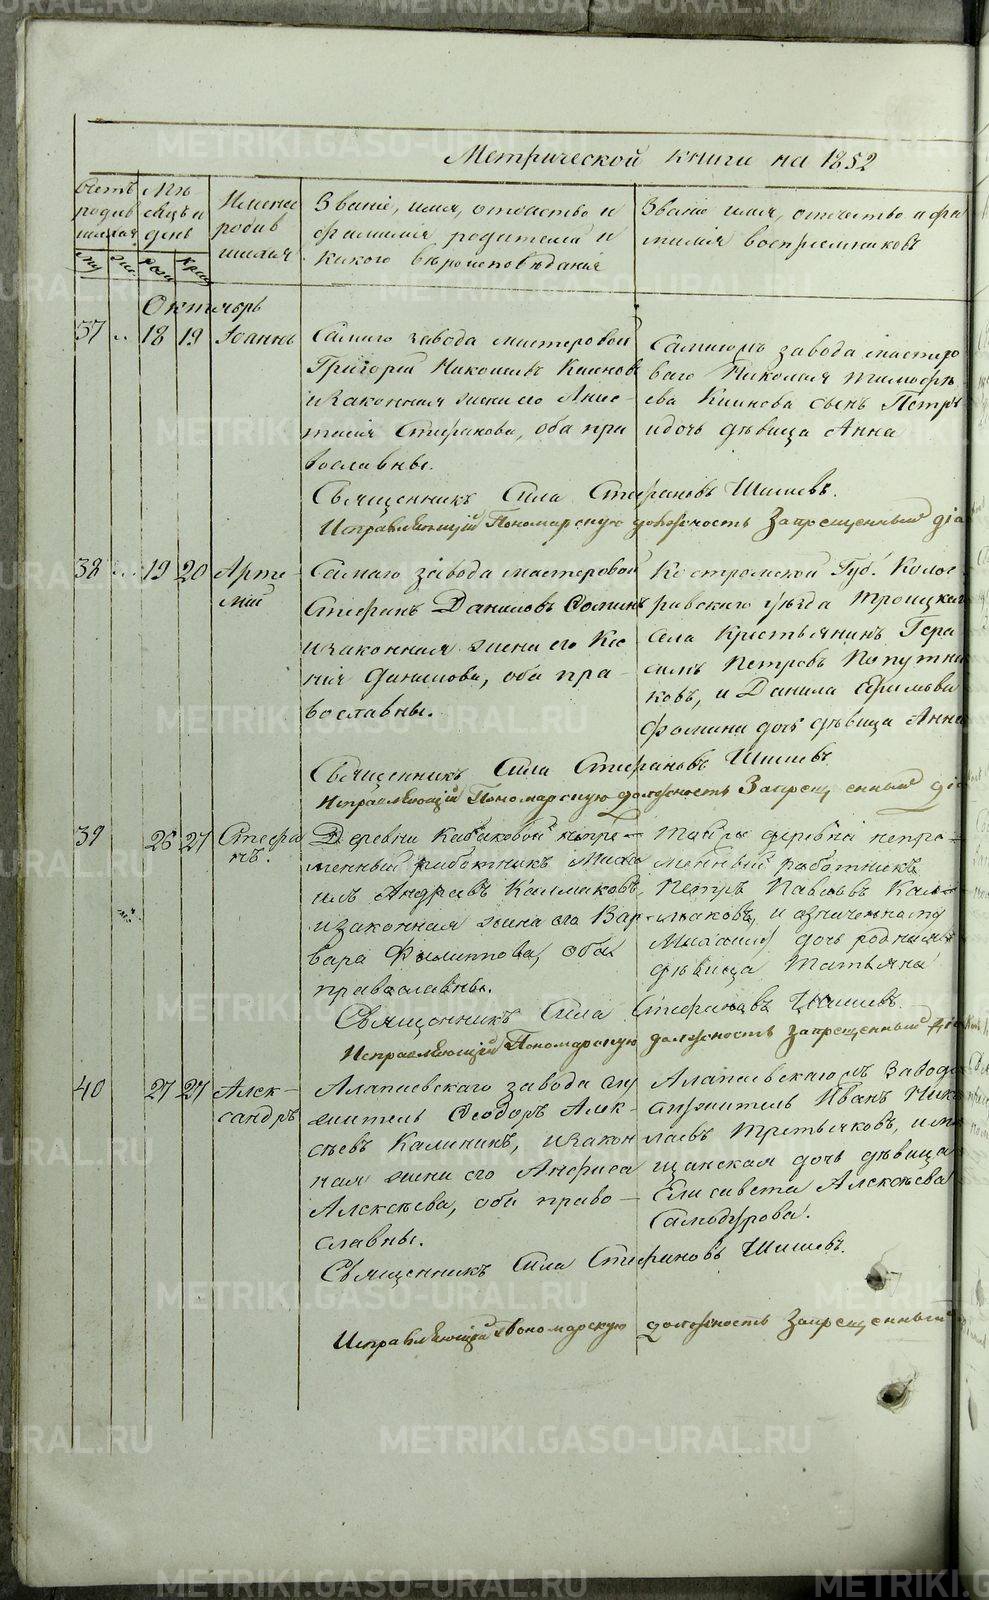 Метрической книги на 1852
Счетъ родив шихся
Мѣ сяцъ и день
Имена родив шихся
Званіе, имя, отчество и фамилія родителей и какого вѣроисповѣданія
Званіе имя, отчество и фа милія воспріемниковъ
му же рож крещ
Октябрь
37 18 19 Іоаннъ
Самаго завода мастеровой
Григорій Николаевъ
и законная жена его Анас-
тасія Стефанова, оба пра
вославны.
Самаго завода мастеро
ваго Николая Тимофѣ
ева сынъ Петръ
и дочь дѣвица Анна
Священникъ Сила Стефановъ Шишевъ.
Исправляющій Пономарскую должность Запрещенный діа
38 19 20 Арте-
мій
Самаго завода мастеровой
Стефанъ Даниловъ
и законная жена его Ксе
нія Данилова, оба пра-
вославны.
Костромской Губ.
уѣзда Троицкаго
села Крестьянинъ Гера
симъ Петровъ Попутни
ковъ, и Данила Ефимова
Фомина дочь дѣвица Анна
Священникъ Сила Стефановъ Шишевъ
Исправляющій Пономарскую должность Запрещенный діа
39 26 27 Стефа
нъ.
Деревни Кабаковой непре-
менный работникъ Миха
илъ Андреевъ Калмаковъ,
и законная жена его Вар-
вара Филиппова, оба
православны.
Тойже деревни непре-
менный работникъ
Петръ Павловъ Кал-
маковъ, и означеннаго
Михаила дочь родная
дѣвица Татьяна
Священникъ Сила Стефановъ Шишевъ
Исправляющій Пономарскую должность Запрещенный діа
40 27 27 Алек-
сандръ
Алапаевскаго завода слу
житель Ѳеодоръ Алек-
сѣевъ Калининъ, и закон
ная жена его Анфиса
Алексѣева, оба право-
славны.
Алапаевскаго завода
служитель Иванъ Нико
лаевъ Третьяковъ, и мѣ
щанская дочь дѣвица
Елисавета Алексѣева
Самодурова.
Священникъ Сила Стефановъ Шишевъ.
Исправляющій Пономарскую должность Запрещенный
METRIKI.GASO-URAL.RU